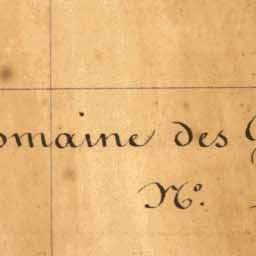 omaine des
N.º